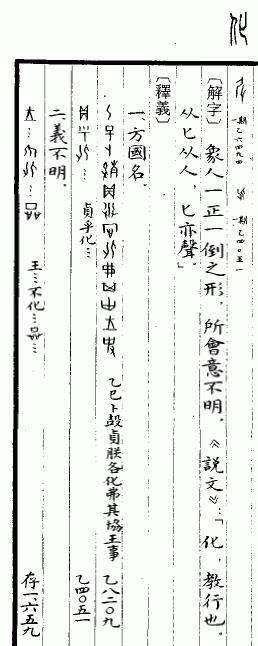 化
一期乙六四九四 一期乙四〇五一
〔解字〕象人一正一倒之形，所會意不明。《說文》：「化，教行也。
从匕从人，匕亦聲。」
〔釋義〕
一、方國名。
乙巳卜㱿貞朕各化弗其協王事 乙八二〇九
貞乎化… 乙四〇五一
二、義不明。
王…不化…品… 存一、六五九